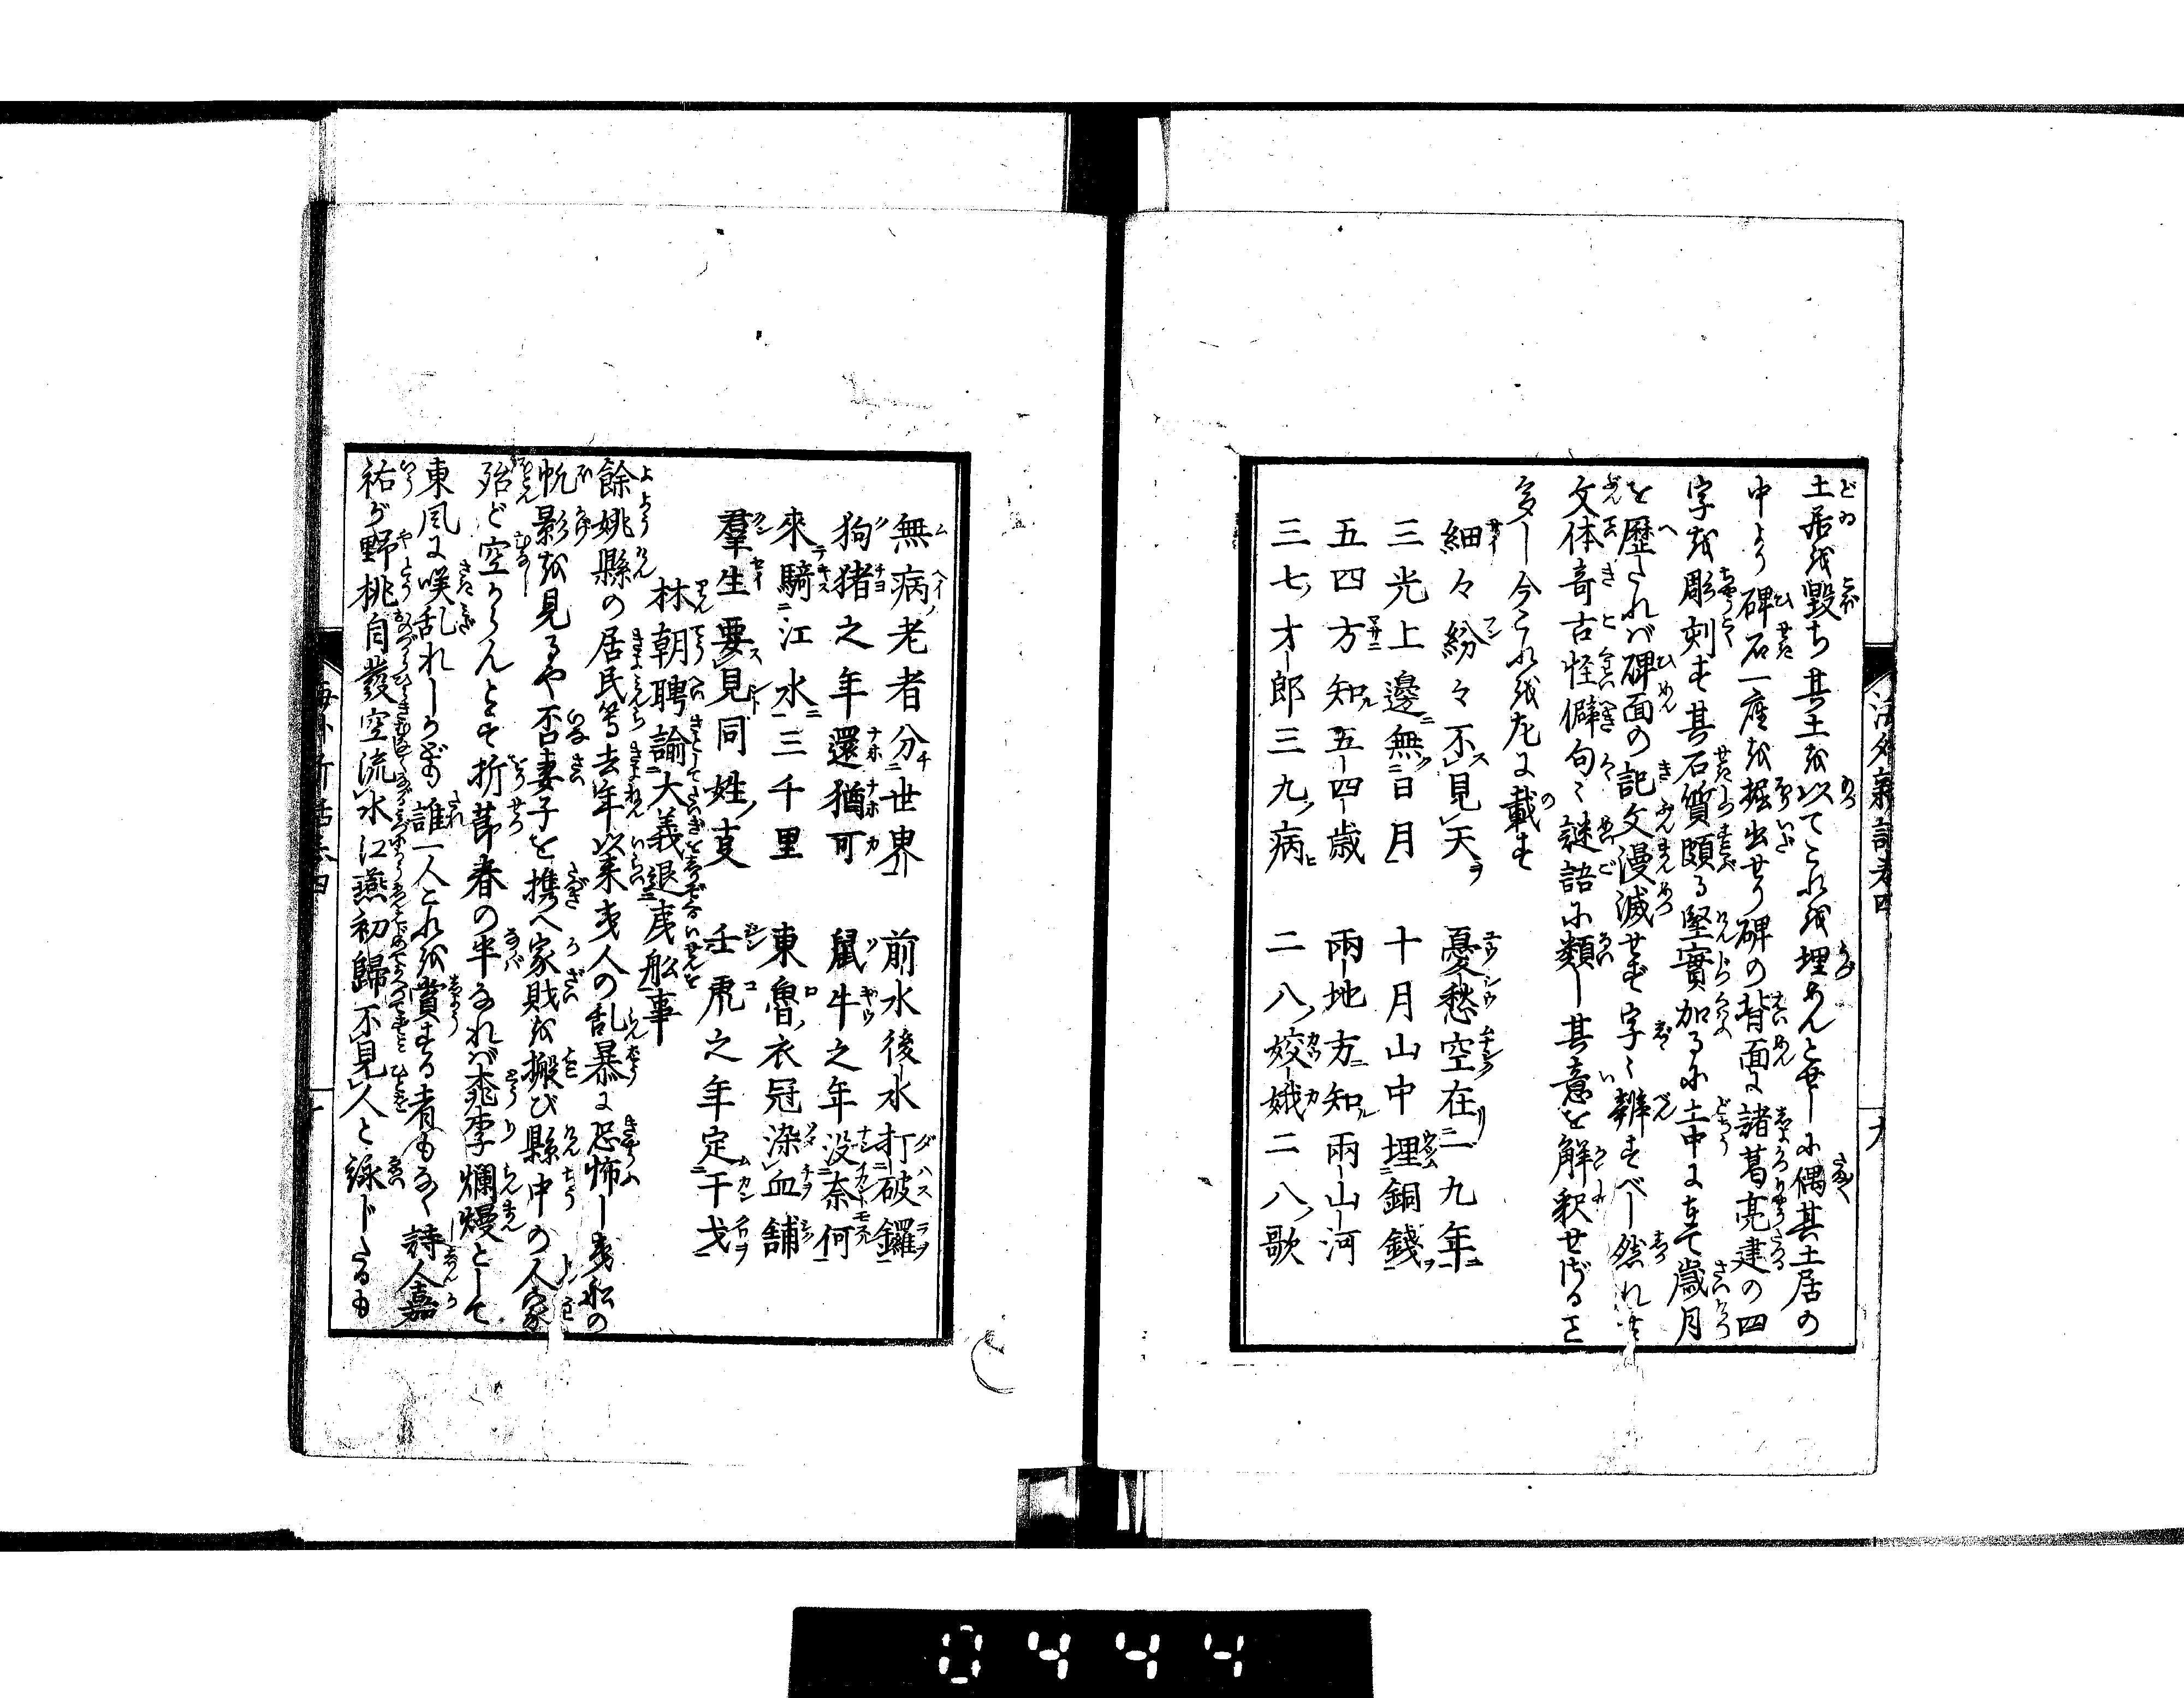 土居を毀ち其土を以てこれを埋めんとせしに偶其土居の
中より碑石一座を掘出せり碑の背面に諸葛亮建の四
字を彫刻す其石質頗る堅實加るに土中に在て歳月
を歴されば碑面の記文漫滅せず字々辨ずべし然れども
文体奇古怪僻句々謎語に類し其意を解釈せざること
多し今これを左に載す
細々紛々不見天　憂愁空在二九年
三光上邊無日月　十月山中埋銅錢
五四方知五四歳　兩地方知兩山河
三七才郎三九病　二八姣娥二八歌
九
無病老者分世界　前水後水打破鑼
狗猪之年還猶可　鼠牛之年没奈何
來騎江水三千里　東魯衣冠染血舖
羣生要見同姓支　壬虎之年定干戈
林朝聘諭大義退虜舩事
餘姚縣の居民等去年以来夷人の乱暴に恐怖し夷舩の
帆影を見るや否妻子を携へ家財を搬び縣中の人家
殆ど空からんとす折節春の半なれば桃李爛熳として
東風に咲乱れしかども誰一人これを賞する者もなく詩人嘉
祐が野桃自發空流水江燕初歸不見人と詠じたるも
0444